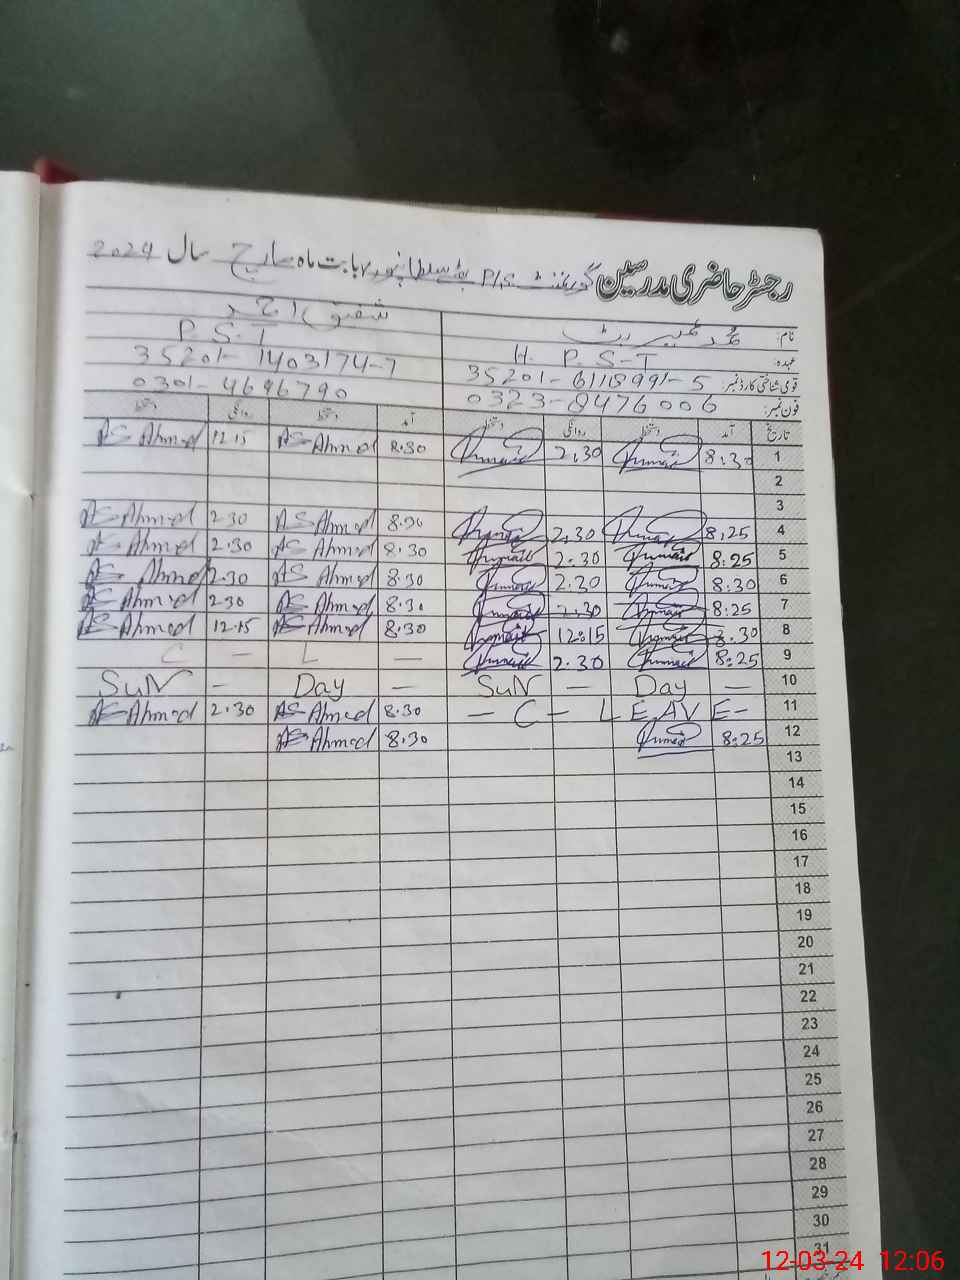 رجسٹر حاضری مدرسین گورنمنٹ P/S سلطانپورہ بابت ماہ مارچ سال 2024
نام: محمد عمیر بٹ شفیق احمد
عہدہ: H. P. S-T P. S-T
قومی شناختی کارڈ نمبر: 35201-6111899-5 35201-1403174-7
فون نمبر: 0323-8476006 0301-4696790
تاریخ آمد دستخط روانگی دستخط آمد دستخط روانگی دستخط
1 8:30 2.30 8.30 AS Ahmed 12.15 AS Ahmed
2
3
4 8:25 2.30 8.30 AS Ahmed 2.30 AS Ahmed
5 8:25 2.30 8.30 AS Ahmed 2.30 AS Ahmed
6 8:30 2.30 8.30 AS Ahmed 2.30 AS Ahmed
7 8:25 2.30 8.30 AS Ahmed 2.30 AS Ahmed
8 8.30 12:15 8.30 AS Ahmed 12.15 AS Ahmed
9 8:25 2.30 — L — C
10 — Day — SuN — Day — SuN
11 — C — L E A V E — 8.30 AS Ahmed 2.30 AS Ahmed
12 8:25 8.30 AS Ahmed
13
14
15
16
17
18
19
20
21
22
23
24
25
26
27
28
29
30
31
12-03-24 12:06